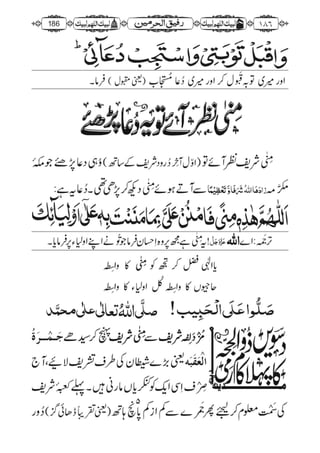 186 لبیک اللھم لبیک رفیق الحرمین لبیک اللھم لبیک ١٨٦
وَاقْبَلْ تَوْبَتِیْ وَاسْتَجِبْ دُعَآئِیْ
اور میری توبہ قبول کر اور میری دُعا مُستجاب (یعنی مقبول) فرما۔
مِنٰی نظر آئے تو یہ دُعا پڑھئے
مِنٰی شریف نظر آئے تو (اوّل آخر دُرود شریف کے ساتھ) وُہی دُعا پڑھئے جو مکّۂ
مکرّمہ زَادَهَا اللّٰهُ شَرَفًا وَّتَعْظِيْمًا سے آتے ہوئے مِنٰی دیکھ کر پڑھی تھی۔ دُعا یہ ہے:
اَللّٰهُمَّ هٰذِهٖ مِنًی فَامْنُنْ عَلَیَّ بِمَا مَنَنْتَ بِهٖ عَلٰۤی اَوْلِیَآئِكَ
ترجَمہ: اے اللہ! یہ مِنٰی ہے مجھ پر وہ احسان فرما جو تُو نے اپنے اولیاء پر فرمایا۔
یاالٰہی فضل کر تجھ کو مِنٰی کا واسِطہ
حاجیوں کا واسِطہ کُل اولیاء کا واسِطہ
صَلُّوا عَلَی الْحَبِیب! صلَّی اللهُ تعالٰی علٰی محمَّد
دسویں ذوالحجہ کا پہلا کام رَمی
مُزْدَلِفہ شریف سے مِنٰی شریف پہنچ کر سیدھے جَمْرَةُ
الْعَقَبَه یعنی بڑے شیطان کی طرف تشریف لائیے، آج
صِرف اِسی ایک کو کنکریاں مارنی ہیں۔ پہلے کعبہ شریف
کی سَمْت معلوم کر لیجئے پھر جَمرے سے کم از کم پانچ ہاتھ (یعنی تقریباً ڈھائی گز) دُور